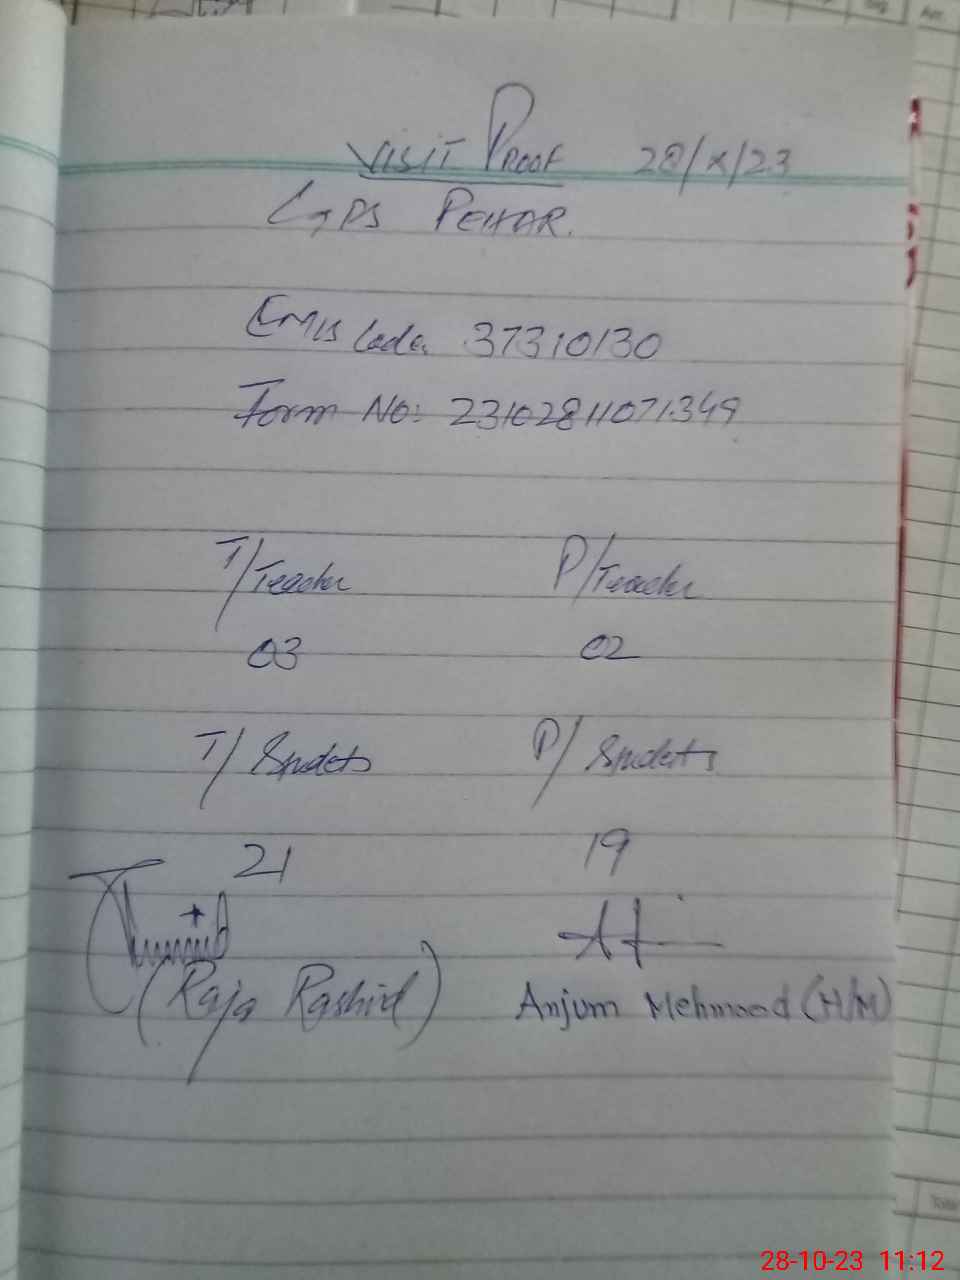 Visit Proof 28/X/23
GPS PEHAR.
Emis Code. 37310130
Form No: 23102811071349
T/Teacher P/Teacher
03 02
T/Studets P/Studets
21 19
(Raja Rashid) Anjum Mehmood (H/M)
28-10-23 11:12